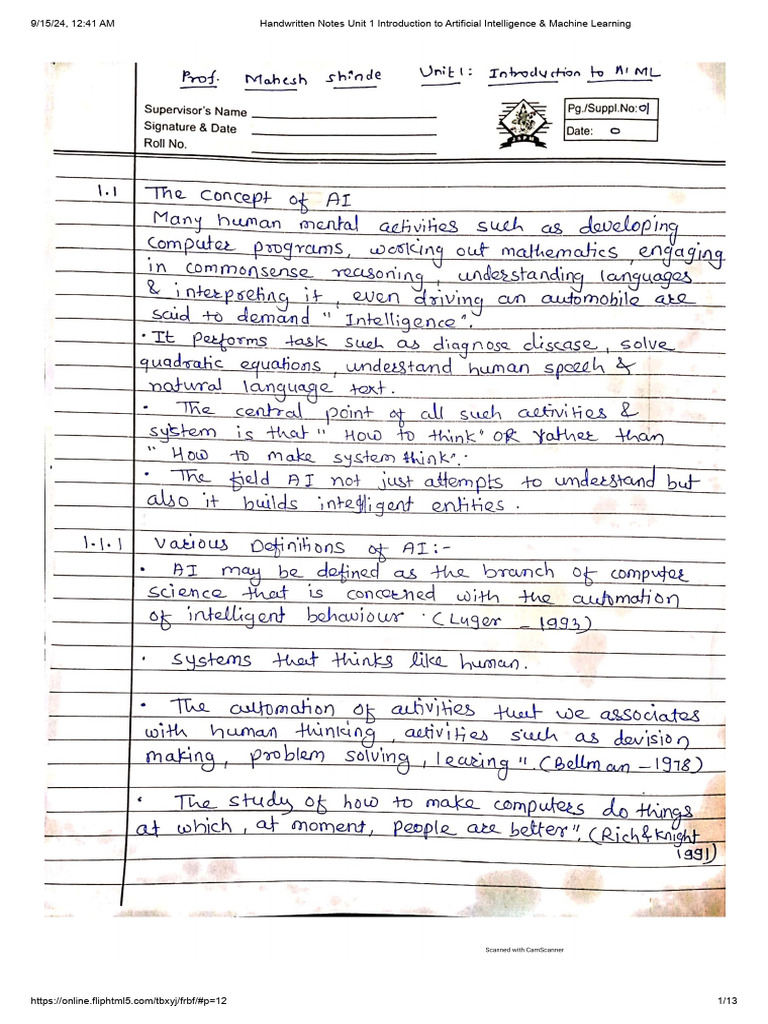 9/15/24, 12:41 AM Handwritten Notes Unit 1 Introduction to Artificial Intelligence & Machine Learning
Prof. Mahesh Shinde Unit1: Introduction to AI ML
Supervisor's Name
Signature & Date
Roll No.
Pg./Suppl.No: 01
Date: 0
1.1 The Concept of AI
Many human mental activities such as developing
computer programs, working out mathematics, engaging
in commonsense reasoning, understanding languages
& interpreting it, even driving an automobile are
said to demand "Intelligence".
• It performs task such as diagnose disease, solve
quadratic equations, understand human speech &
natural language text.
• The central point of all such activities &
system is that "How to think" OR rather than
"How to make system think".
• The field AI not just attempts to understand but
also it builds intelligent entities.
1.1.1 Various Definitions of AI:-
• AI may be defined as the branch of computer
science that is concerned with the automation
of intelligent behaviour. (Luger - 1993)
• systems that thinks like human.
• The automation of activities that we associates
with human thinking, activities such as devision
making, problem solving, learing". (Bellman - 1978)
• The study of how to make computers do things
at which, at moment, people are better". (Rich & Knight
1991)
Scanned with CamScanner
https://online.fliphtml5.com/tbxyj/frbf/#p=12 1/13